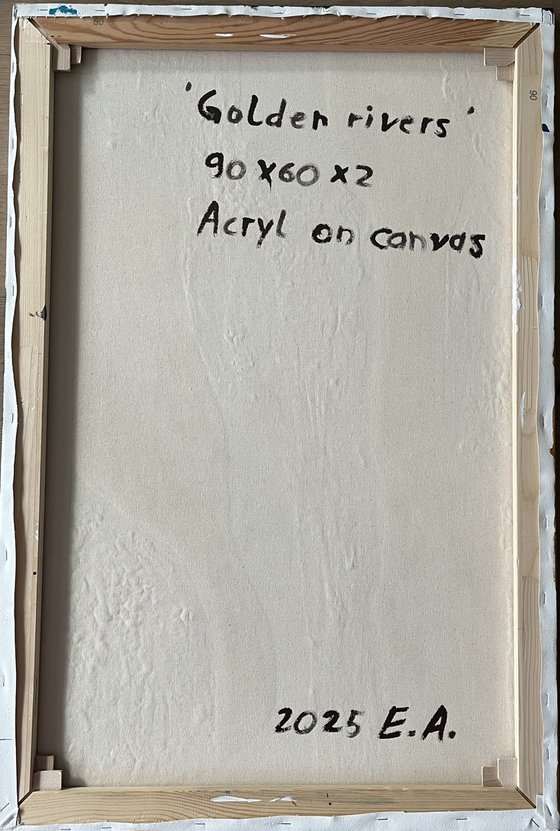 'Golden rivers'
90x60x2
Acryl on canvas
2025 E.A.
90